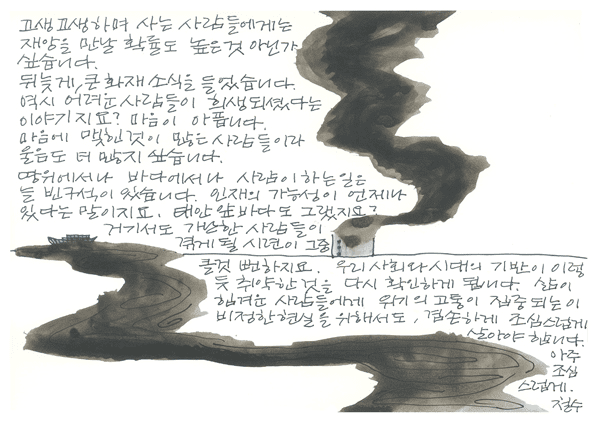 고생고생하며 사는 사람들에게는
재앙을 만날 확률도 높은것 아닌가
싶습니다.
뒤늦게, 큰 화재 소식을 들었습니다.
역시 어려운 사람들이 희생되셨다는
이야기지요? 마음이 아픕니다.
마음에 맺힌것이 많은 사람들이라
울음도 더 많지 싶습니다.
땅위에서나 바다에서나 사람이 하는 일은
늘 빈구석이 있습니다. 인재의 가능성이 언제나
있다는 말이지요. 태안 앞바다도 그랬지요?
거기서도 가난한 사람들이
겪게 될 시련이 그중
클것 뻔하지요. 우리 사회와 시대의 기반이 이렇
듯 취약한 것을 다시 확인하게 됩니다. 삶이
힘겨운 사람들에게 위기의 고통이 집중되는 이
비정한 현실을 위해서도, 겸손하게 조심스럽게
살아야 합니다.
아주
조심
스럽게.
철수